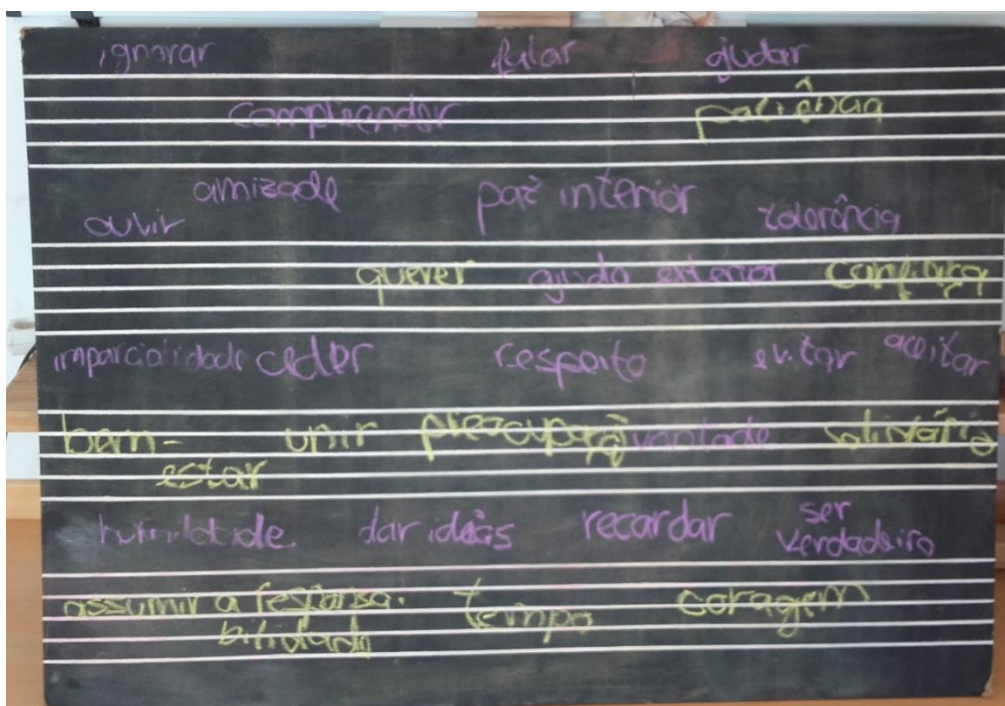 ignorar falar ajudar
compreender paciência
amizade paz interior tolerância
ouvir
querer ajuda exterior confiança
imparcialidade ceder respeito evitar aceitar
bem- unir vontade
estar
humildade. dar ideias recordar ser
verdadeiro
assumir a responsa.
bilidade tempo coragem